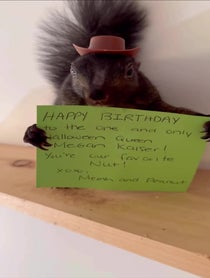 HAPPY BIRTHDAY
to the one and only
Halloween Queen
Megan Kaiser!
You're our favorite
Nut!
xoxo,
and Peanut